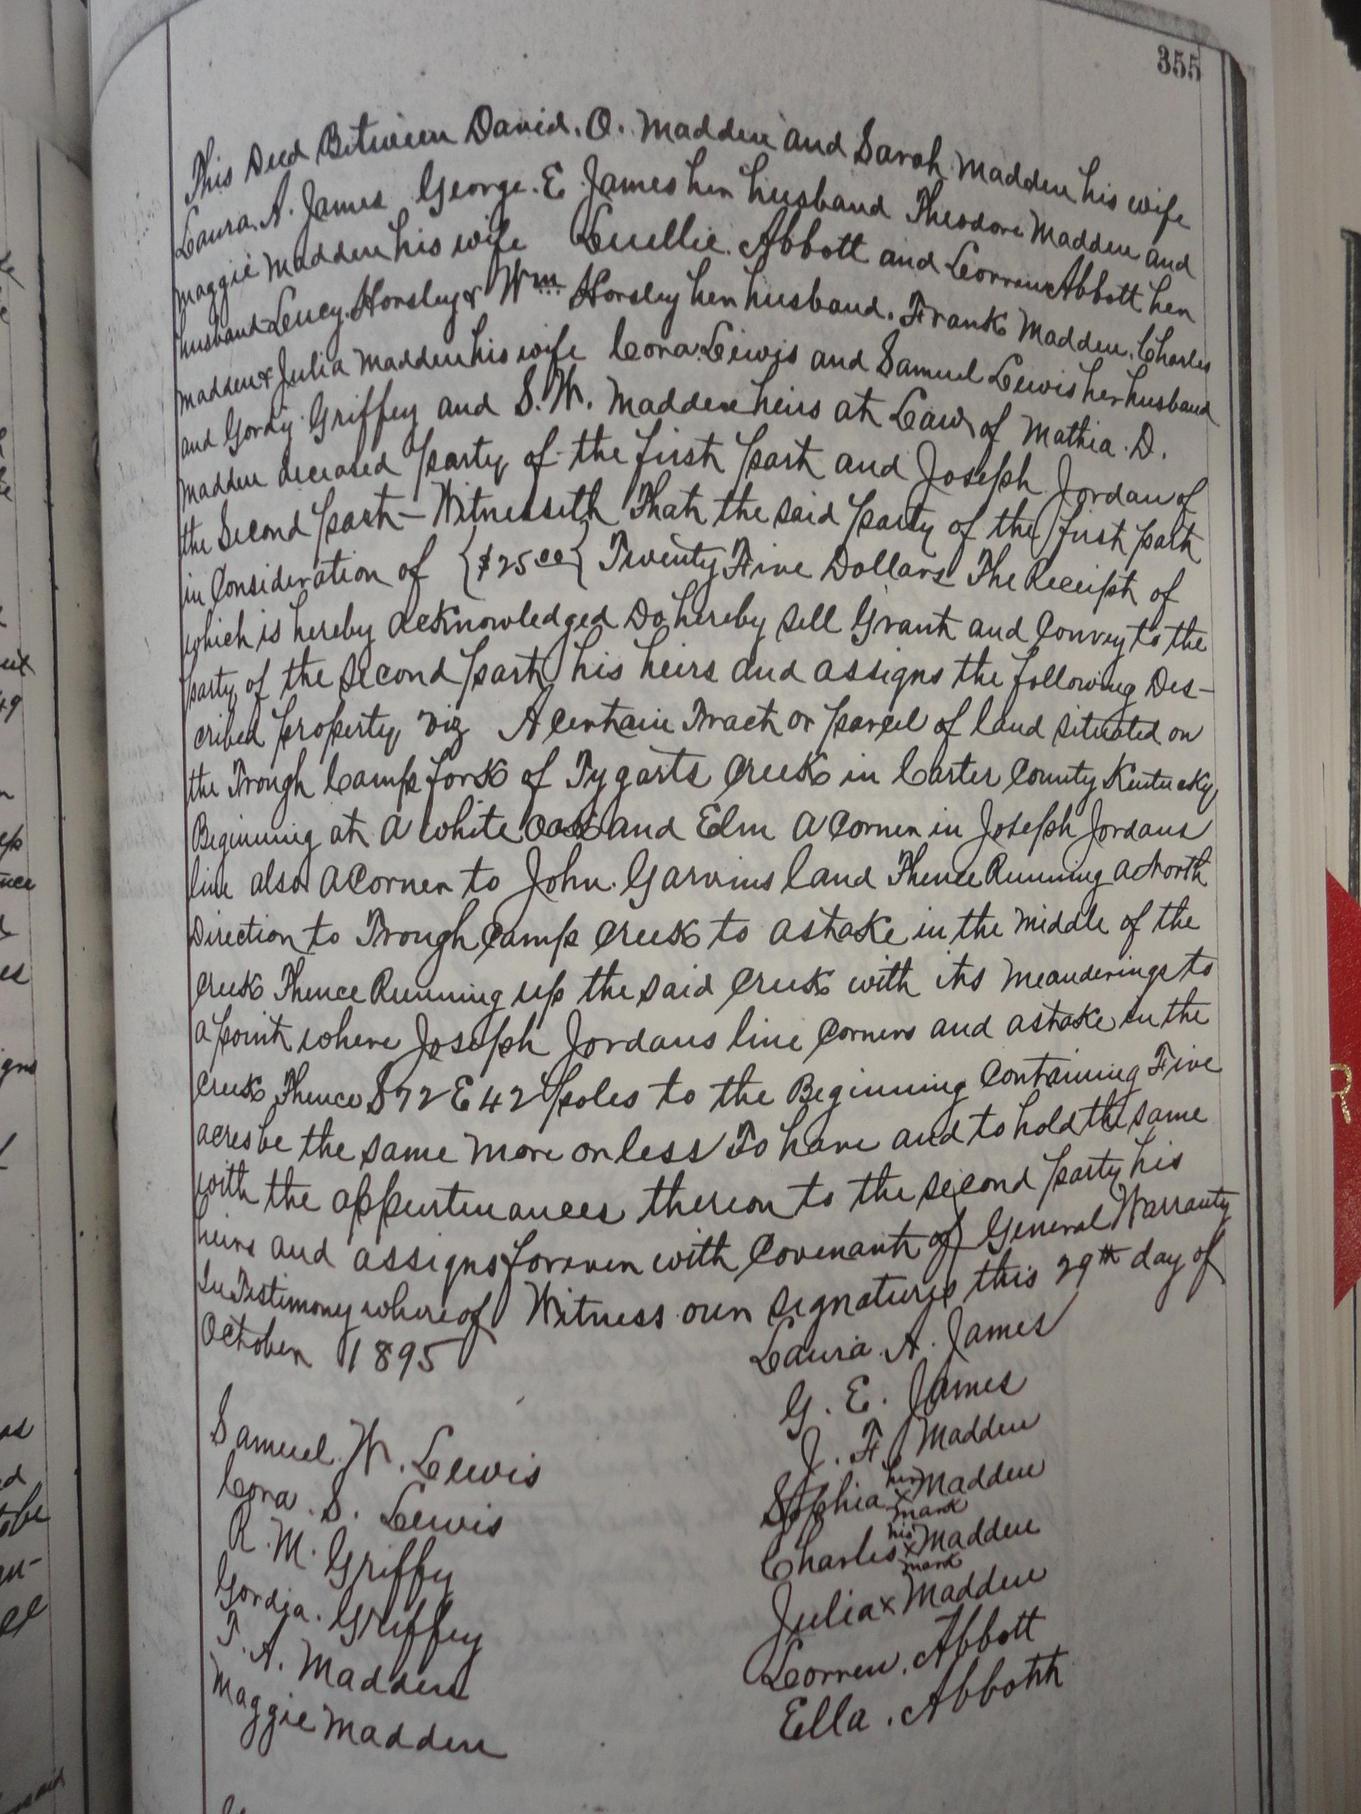 355
This Deed Between David. O. Madden and Sarah Madden his wife
Laura. A. James George. E James her husband Theodore Madden and
Maggie Madden his wife Luellie. Abbott and Lorren Abbott her
husband Lucy. Horsley & Wm Horsley her husband. Frank Madden. Charles
Madden & Julia Madden his wife Cora. Lewis and Samuel Lewis her husband
and Gordy Griffey and S. W. Madden heirs at Law of Mathia. D.
Madden deceased party of the first part and Joseph Jordan of
the Second part – Witnesseth That the said party of the first part
in Consideration of {$25 00} Twenty Five Dollars The Receipt of
which is hereby acknowledged Do hereby sell Grant and Convey to the
party of the second part his heirs and assigns the following Des-
cribed property, viz A certain Tract or parcel of land situated on
the Trough Camp fork of Tygarts Creek in Carter County Kentucky,
Beginning at a white oak and Elm a Corner in Joseph Jordans
line also a Corner to John. Garvins land Thence Running a North
Direction to Trough Camp Creek to a stake in the middle of the
creek Thence Running up the said Creek with its meanderings to
a point where Joseph Jordans line Corners and a stake in the
creek Thence S 72 E 42 poles to the Beginning Containing Five
acres be the same more or less To have and to hold the same
with the appurtenances thereon to the second party his
heirs and assigns forever with Covenant of General Warranty
In Testimony whereof Witness our signatures this 29th day of
October 1895
Laura. A. James
G. E. James
J. F. Madden
Sophia her x mark Madden
Charles his x mark Madden
Julia x Madden
Lorren. Abbott
Ella. Abbott
Samuel. W. Lewis
Cora. S. Lewis
R. M. Griffy
Gordja. Griffey
T. A. Madden
Maggie Madden